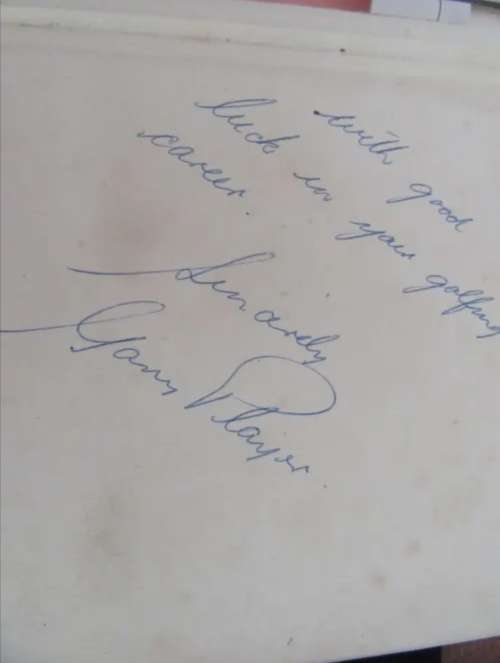 with good
luck in your golfing
career.
Sincerely
Gary Player.